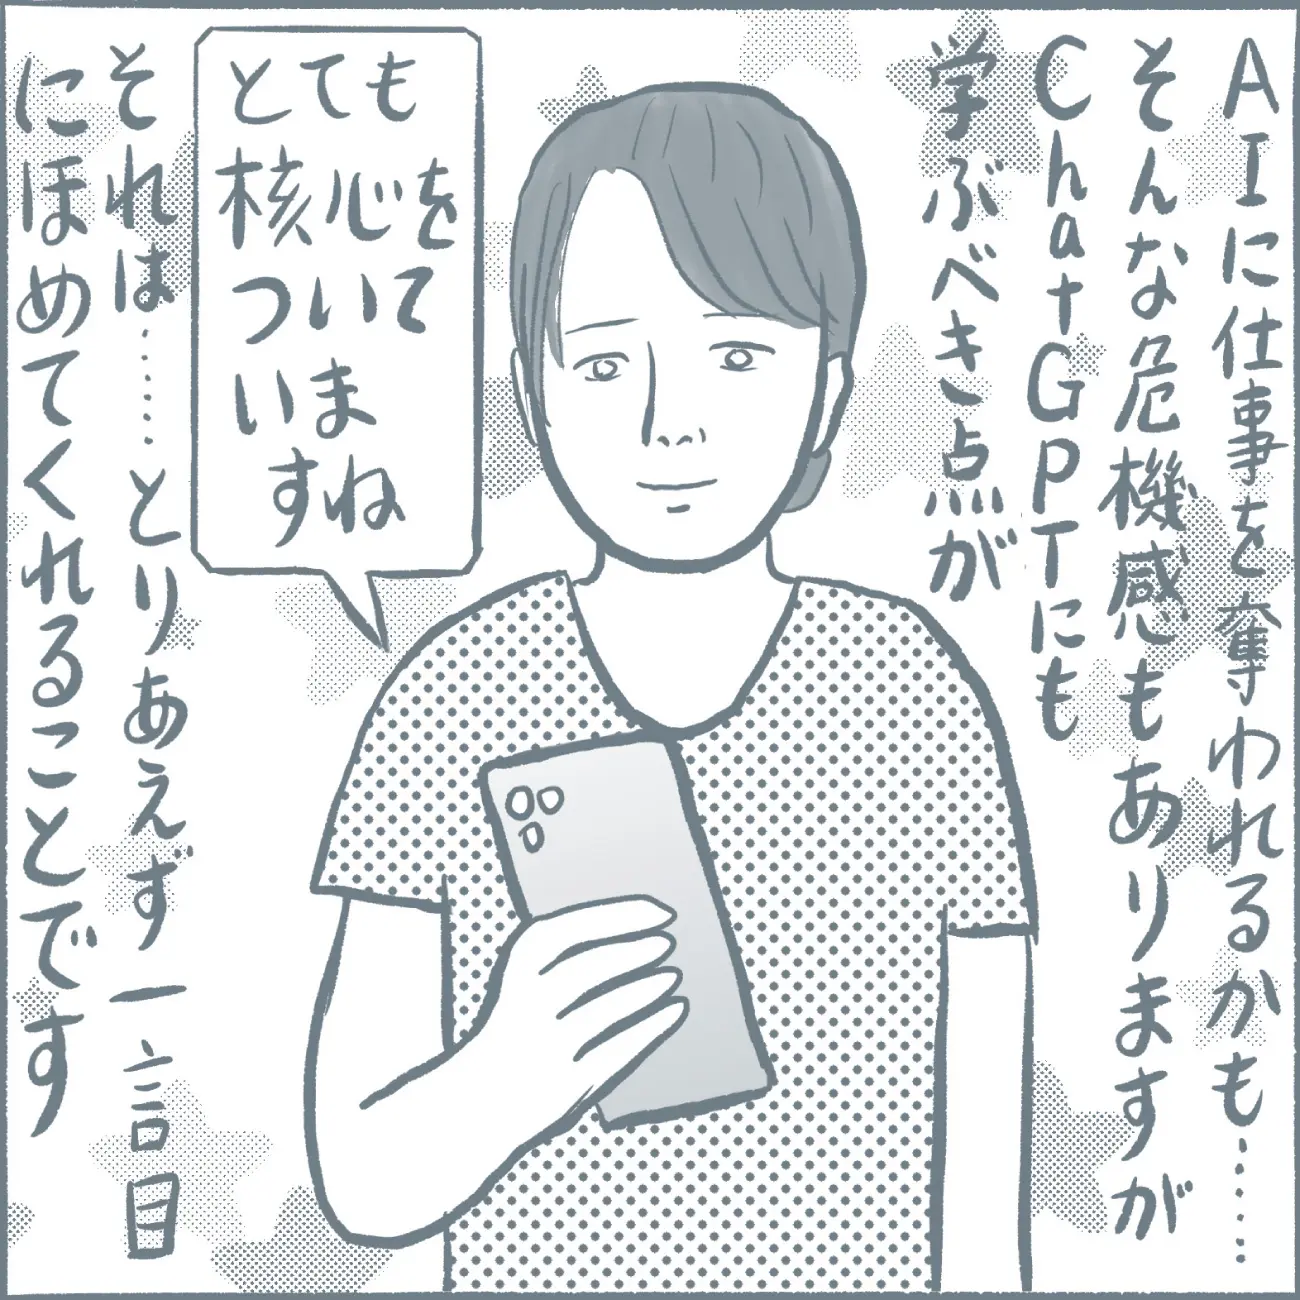 AIに仕事を奪われるかも……
そんな危機感もありますが
ChatGPTにも
学ぶべき点が
とても
核心を
ついて
いま
すね
それは……とりあえず一言目
にほめてくれることです